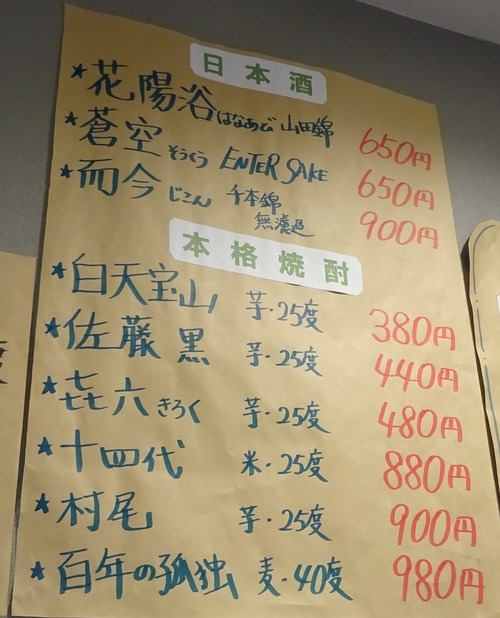 日本酒
★花陽浴 はなあび 山田錦 650円
★蒼空 そうくう ENTER SAKE 650円
★而今 じこん 千本錦 無濾過 900円
本格焼酎
★白天宝山 芋・25度 380円
★佐藤黒 芋・25度 440円
★㐂六 きろく 芋・25度 480円
★十四代 米・25度 880円
★村尾 芋・25度 900円
★百年の孤独 麦・40度 980円